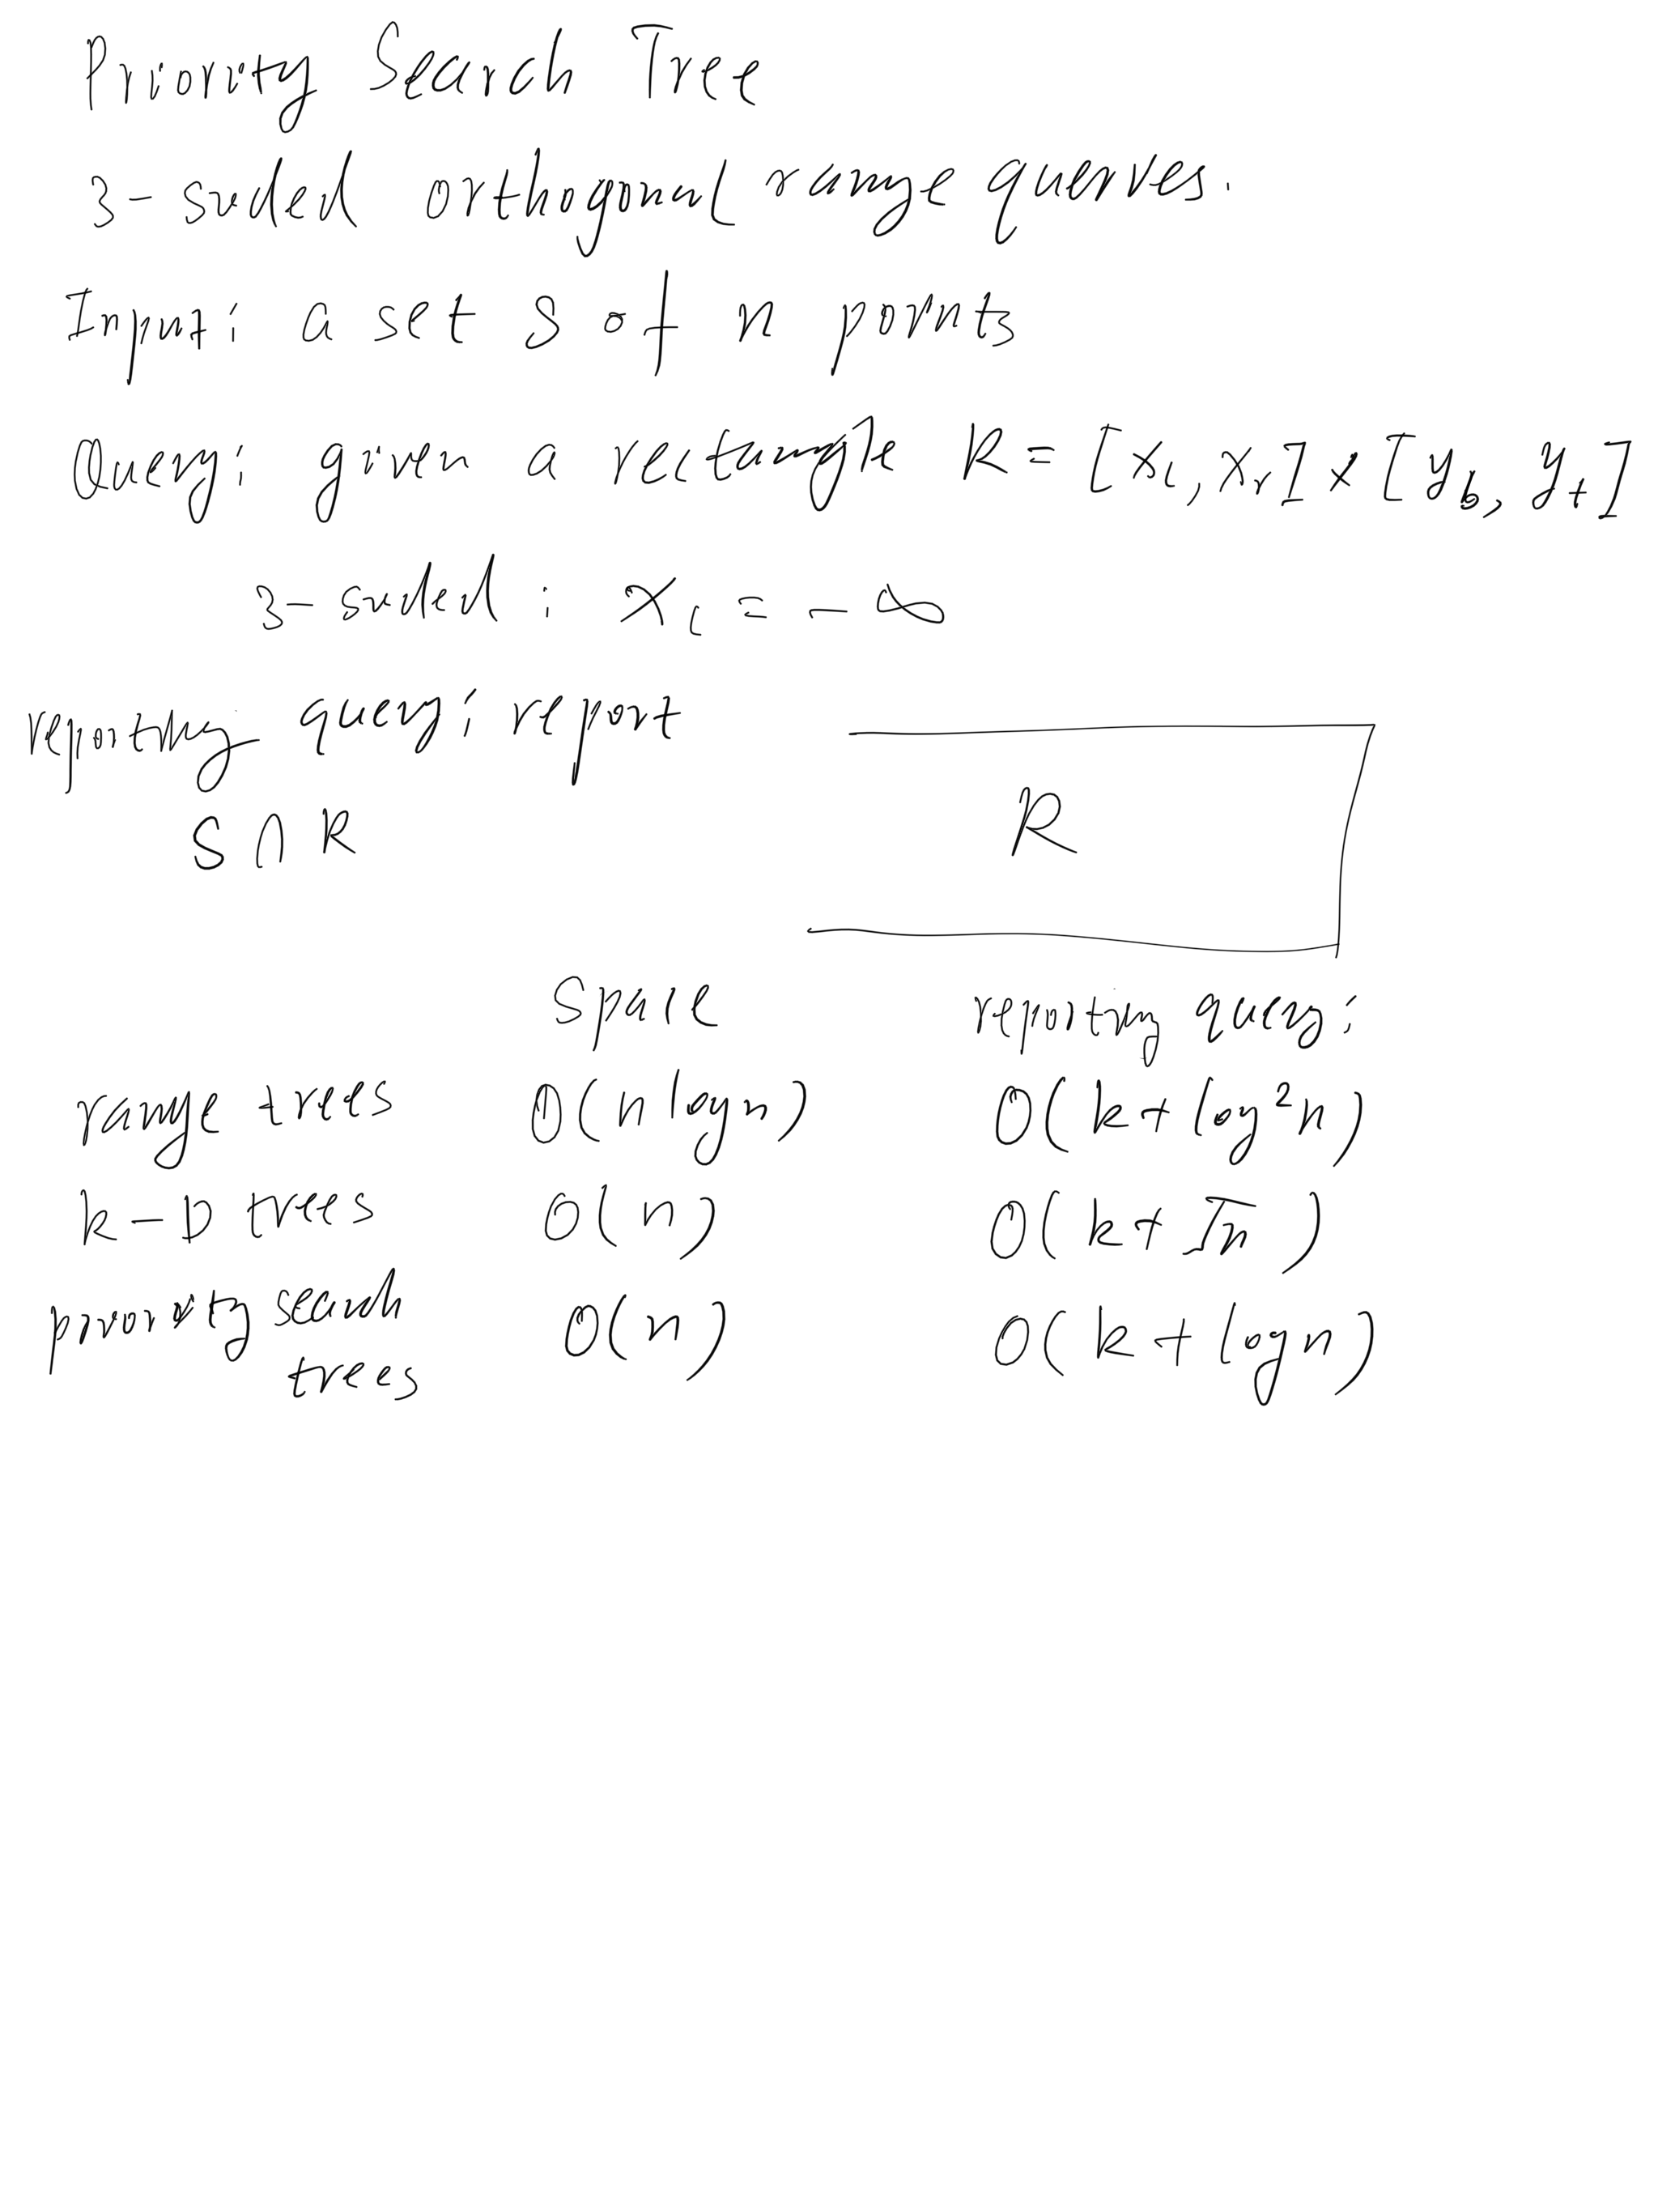 Priority Search Tree
3-sided orthogonal range queries.
Input: a set S of n points
Query: given a rectangle R = [x_l, x_r] × [y_b, y_t]
3-sided: x_l = -∞
reporting query: report
S ∩ R
R
Space reporting query:
range trees O(n log n) O(k + log²n)
k-D trees O(n) O(k + √n)
priority search trees O(n) O(k + log n)